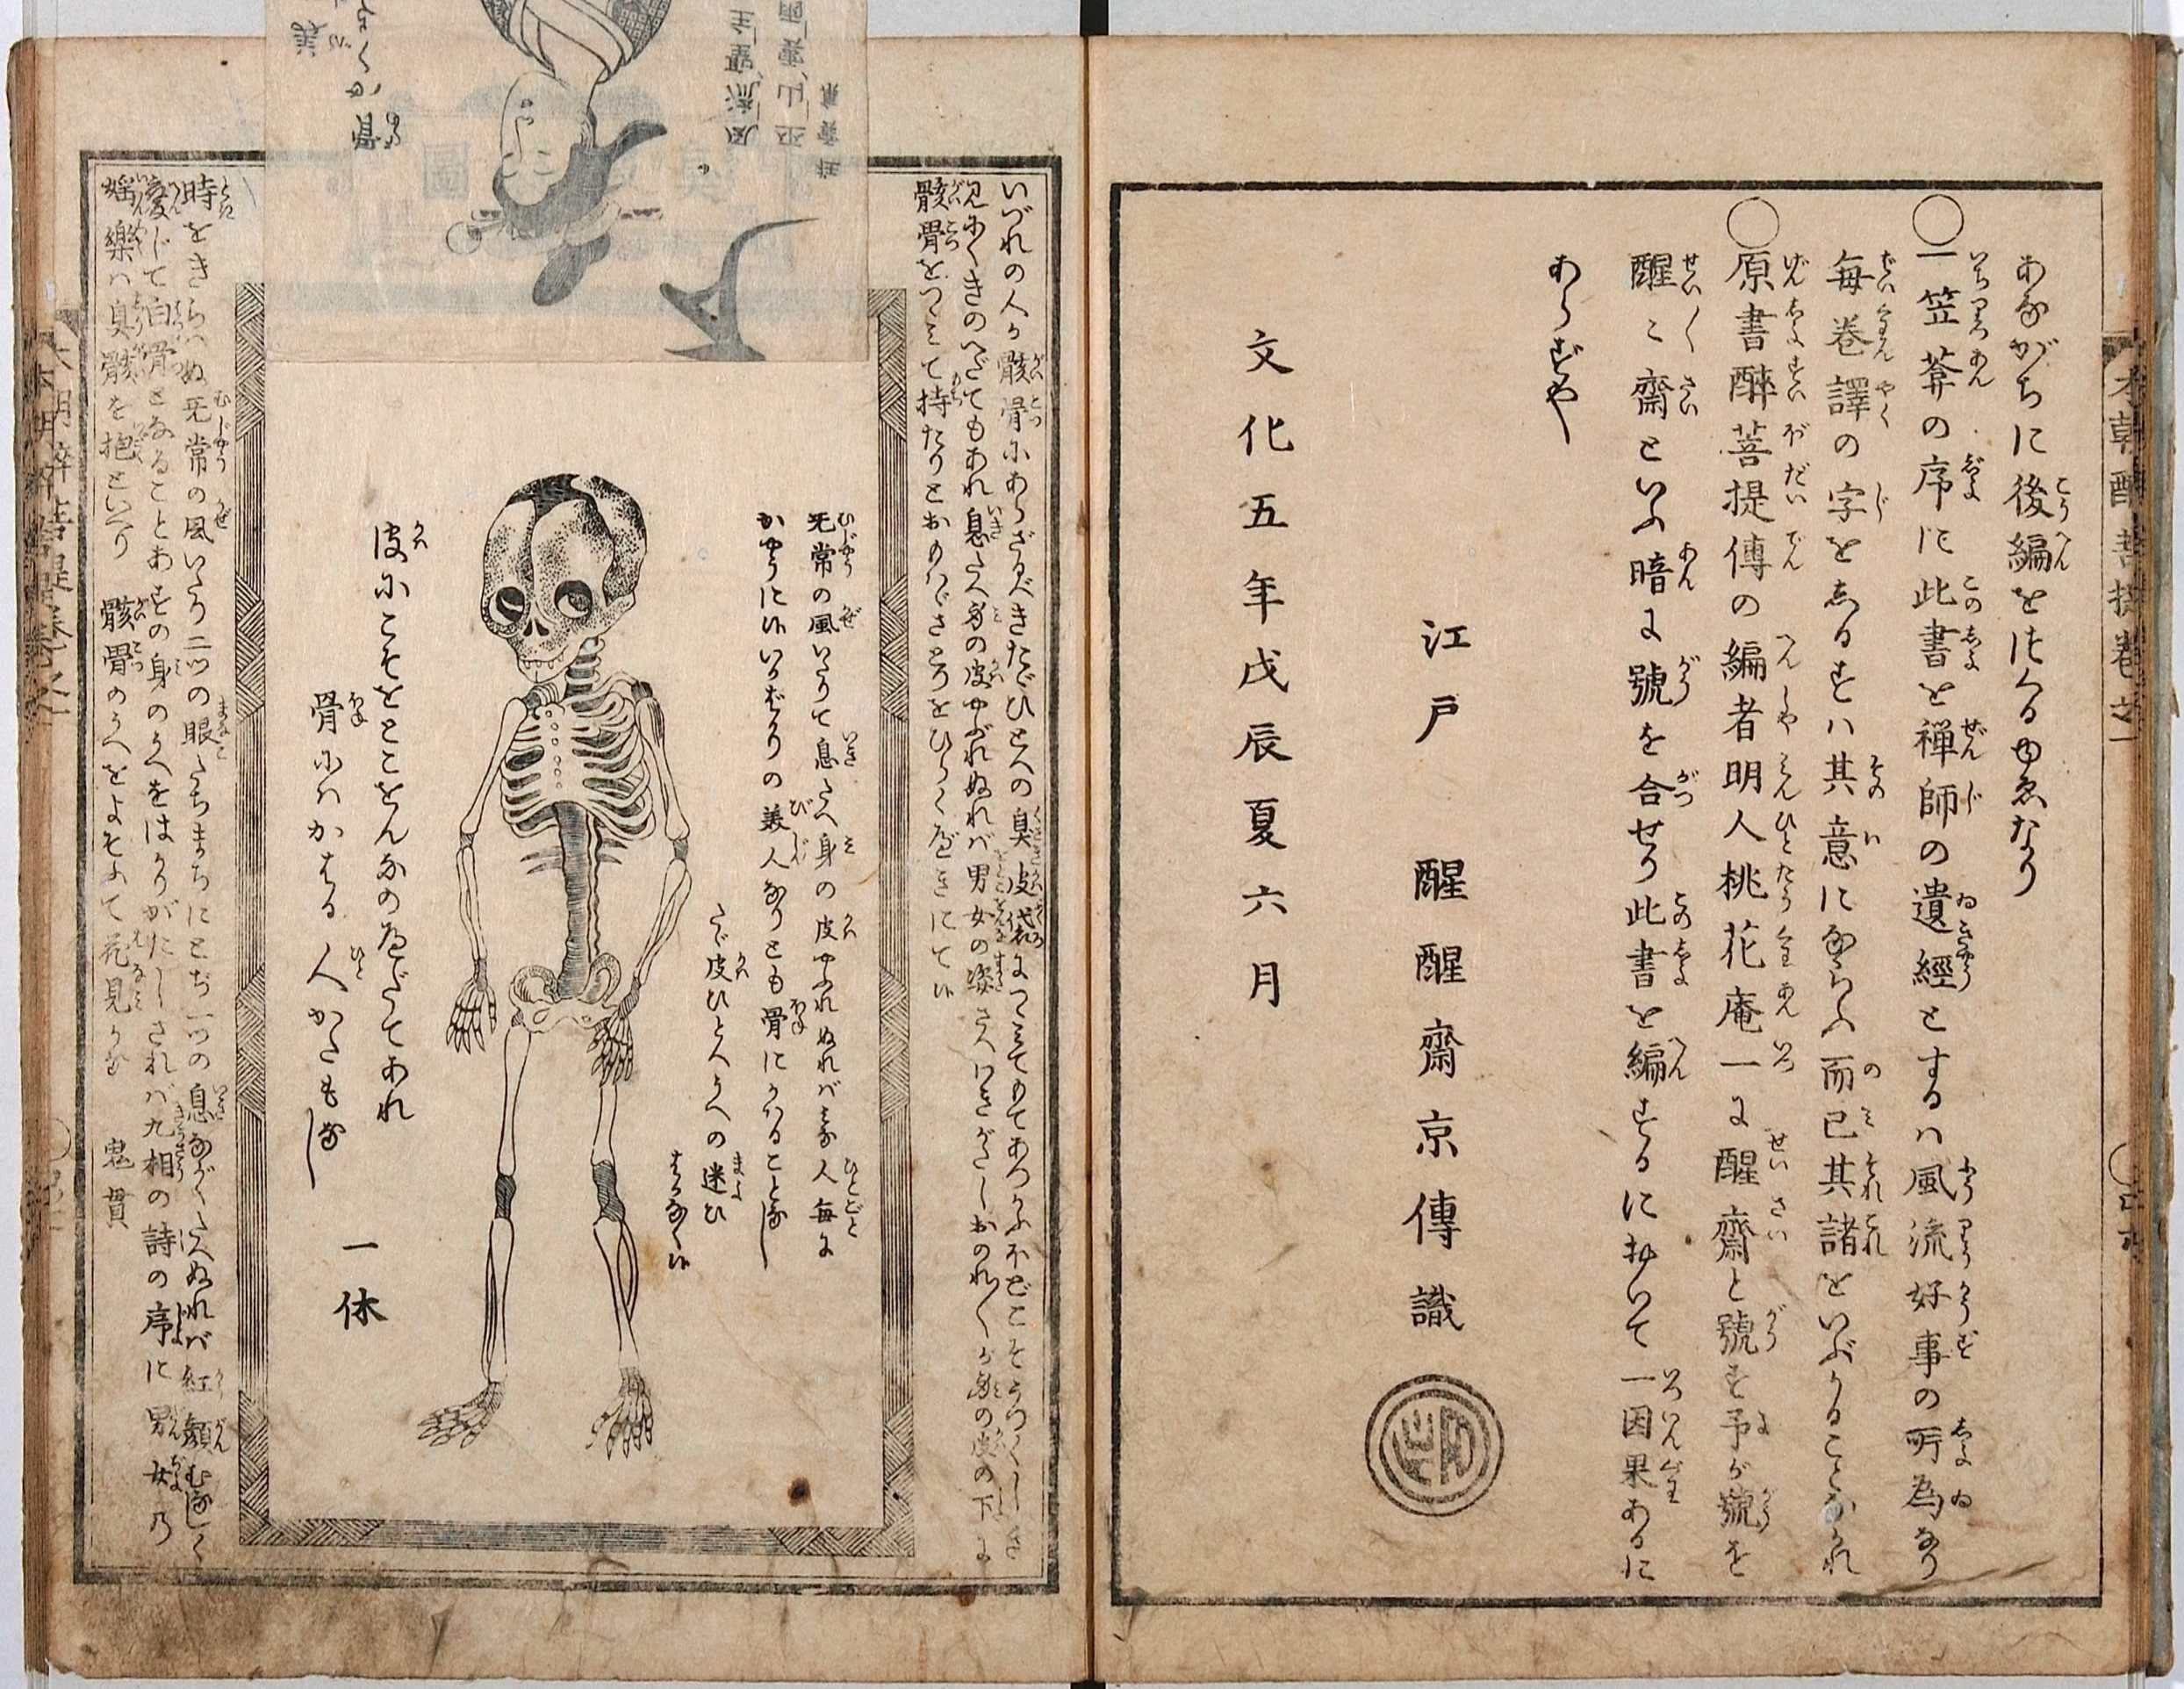 あながちに後編をはくるゆゑなり
○一笠菴の序に此書を禅師の遺經とするハ風流好事の所為なり
毎巻譯の字をしるすハ其意にならふ而已其諸をいぶかることなかれ
○原書醉菩提傳の編者明人桃花庵一に醒齋と號す予が號を
醒〻齋といふ暗に號を合せり此書を編するにおいて一因果あるに
あらずや
江戸 醒醒齋京傳識
文化五年戊辰夏六月
本朝醉菩提巻之一
いづれの人か骸骨にあらざるべきたゞひとへの臭皮袋につゝみてもてあつかふほどこそうつくしき
見にくきのへだてもあれ息たへ身の皮やぶれぬれバ男女の姿さへわきがたしおのれ〳〵が身の皮の下に
骸骨をつゝみて持たりとおもハゞさとりをひらくべきにてハ
無常の風いたりて息たへ身の皮やぶれぬれバみな人毎に
かやうにハいかばかりの美人なりとも骨にかハることなし
たゞ皮ひとへうへの迷ひ
皮にこそをとこをんなのへだてあれ
骨にハかはる人かたもなし
一休
時をきらハぬ無常の風いたり二ツの眼たちまちにとぢ一ツの息ながくたへぬれバ紅顔むなしく
變じて白骨となることわその身のうへをはかりがたしされバ九相の詩の序に男女乃
婬樂ハ臭骸を抱といへり 骸骨のうへをよそふて花見かな 鬼貫